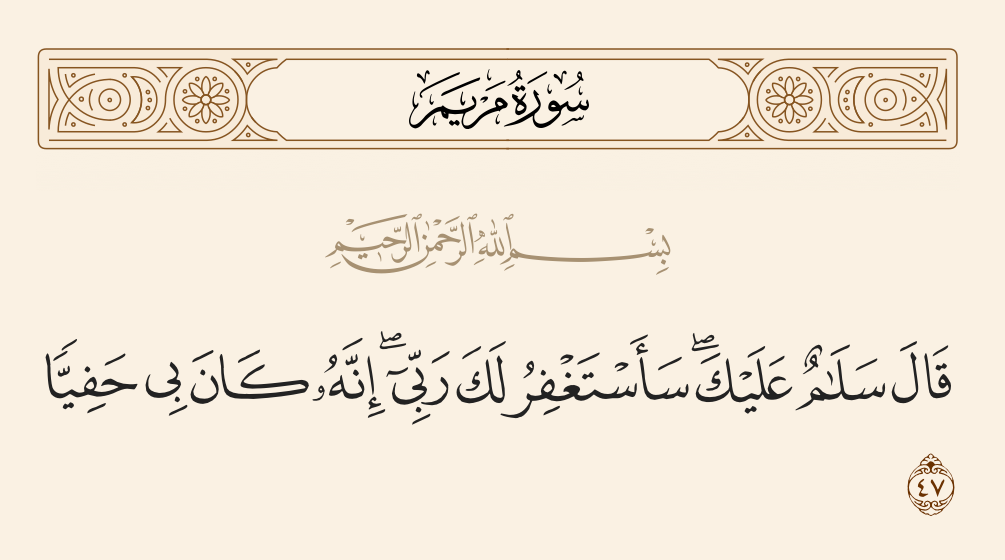 سُورَةُ مَرْيَمَ
بِسْمِ ٱللَّهِ ٱلرَّحْمَٰنِ ٱلرَّحِيمِ
قَالَ سَلَٰمٌ عَلَيْكَ ۖ سَأَسْتَغْفِرُ لَكَ رَبِّىٓ ۖ إِنَّهُۥ كَانَ بِى حَفِيًّا
٤٧